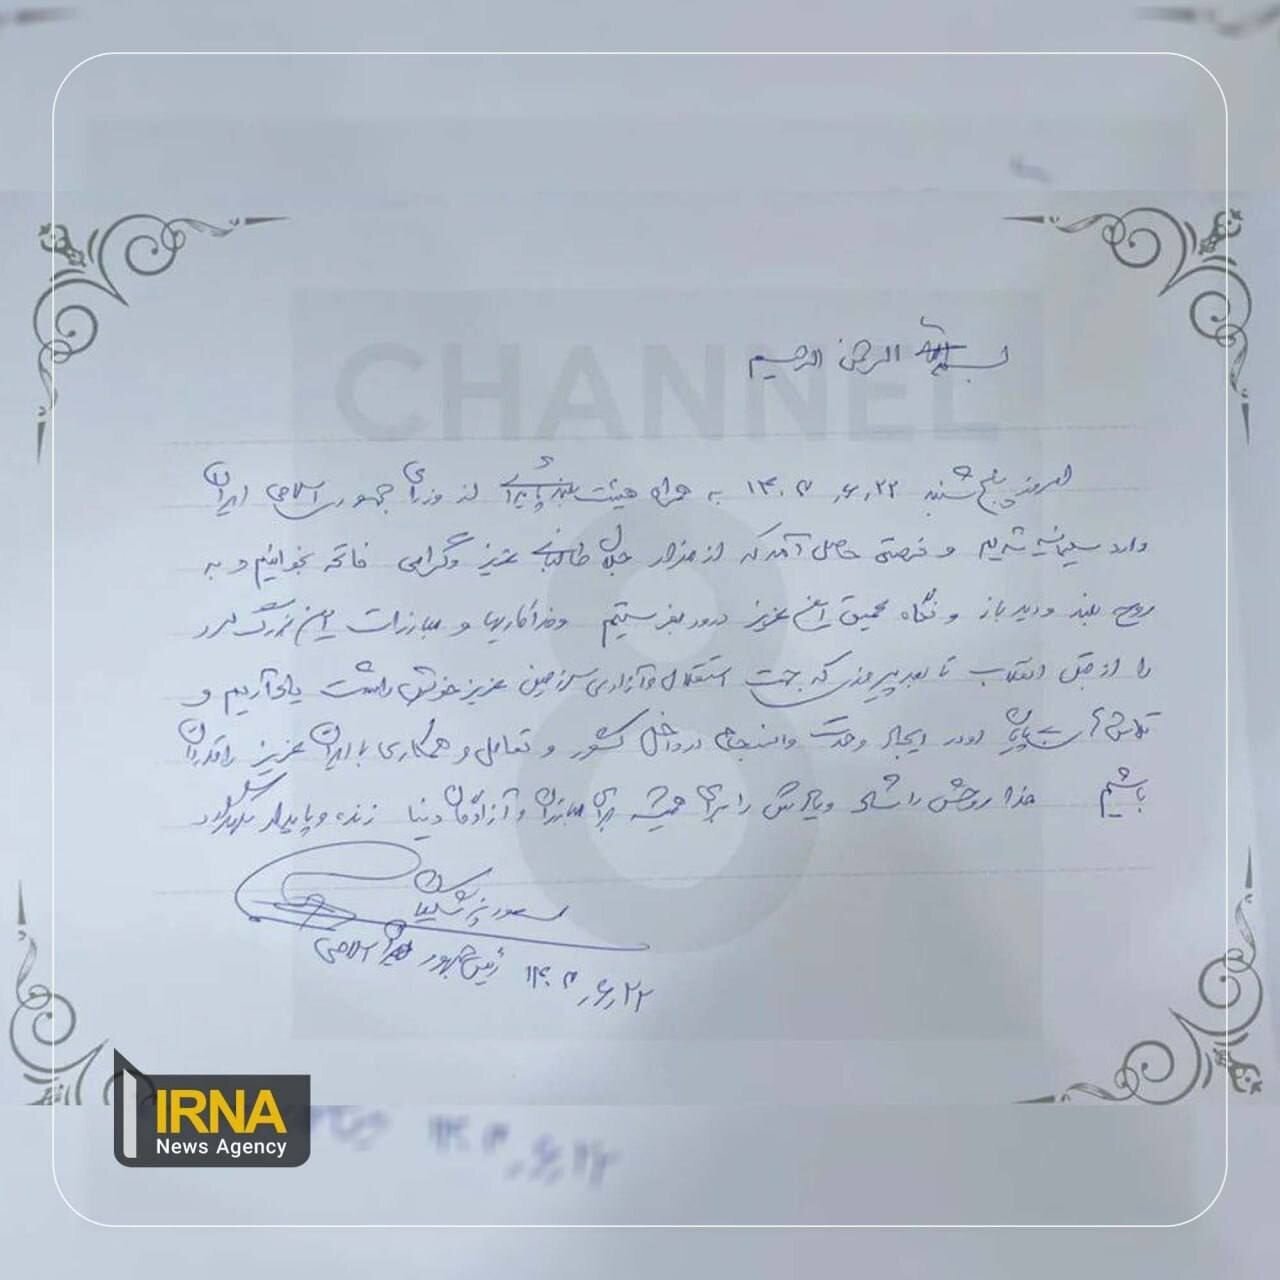 بسم الله الرحمن الرحیم
CHANNEL
امروز پنج شنبه ۱۴۰۳/۶/۲۲ به همراه هیئت بلندپایه‌ای از وزرای جمهوری اسلامی ایران
وارد سلیمانیه شدیم و فرصتی حاصل آمد که از مزار جلال طالبانی عزیز و گرامی فاتحه بخوانیم و به
روح بلند و دید باز و نگاه عمیق این عزیز درود بفرستیم و فداکاریها و مبارزات این بزرگ مرد
را از قبل انقلاب تا بعد پیروزی که جهت استقلال و آزادی سرزمین عزیز خویش داشت یاد آریم و
تلاش بی پایان او در ایجاد وحدت و انسجام در داخل کشور و تعامل و همکاری با ایران عزیز را قدردان
باشیم خدا روحش را شاد و یادش را برای همیشه برای مبارزان و آزادگان دنیا زنده و پایدار
8
مسعود پزشکیان
رئیس جمهور اسلامی
۱۴۰۳/۶/۲۲
IRNA
News Agency